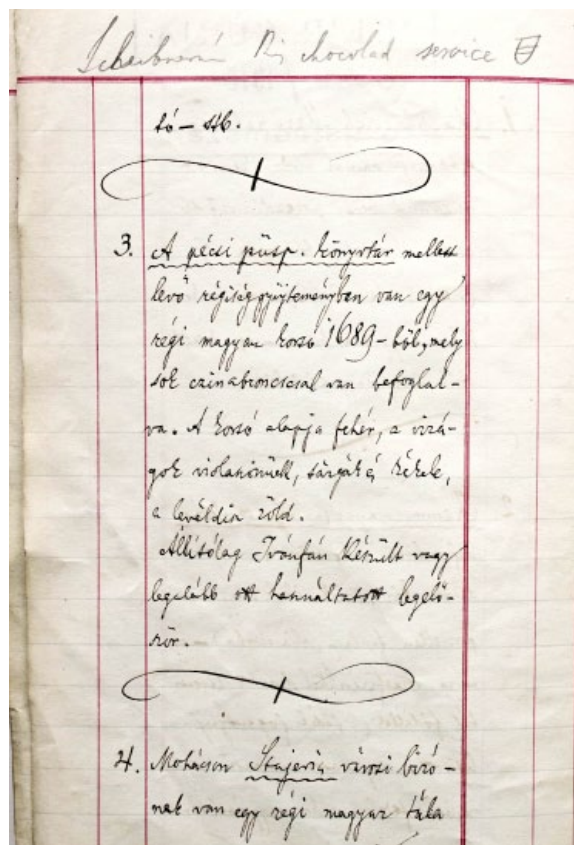 chocolad service
tó – stb.
3. A pécsi püsp. könyvtár mellett
levő régiséggyüjteményben van egy
régi magyar korsó 1689-ből, mely
sok czinabroncscsal van befoglal-
va. A korsó alapja fehér, a virá-
gok violaszinüek, sárgák és kékek,
a levéldisz zöld.
Állítólag Ivánfán készült vagy
legalább ott használtatott legelő-
ször.
4. Mohácson városi biró-
nak van egy régi magyar tála